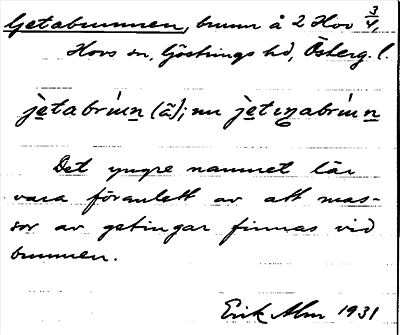 Getabrunnen, brunn å 2 Hov 3/4,
Hovs sn, Göstrings hd, Österg. l.
jètabrúnn (ä); nu jètiŋabrúnn
Det yngre namnet lär
vara föranlett av att mas-
sor av getingar finnas vid
brunnen.
Erik Alm 1931